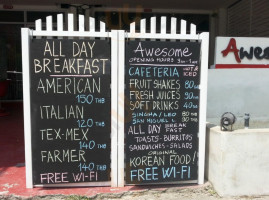 ALL DAY
BREAKFAST
AMERICAN
150 THB
ITALIAN
120 THB
TEX-MEX
140 THB
FARMER
140 THB
FREE WI-FI
Awesome
OPENING HOURS
CAFETERIA HOT & ICED
FRUIT SHAKES 80 THB
FRESH JUICES 90 THB
SOFT DRINKS 40 THB
SINGHA/LEO 80 THB
SAN MIGUEL L. 90 THB
ALL DAY BREAKFAST
TOASTS-BURRITOS
SANDWICHES-SALADS
ORIGINAL
KOREAN FOOD!
FREE WI-FI
Awe